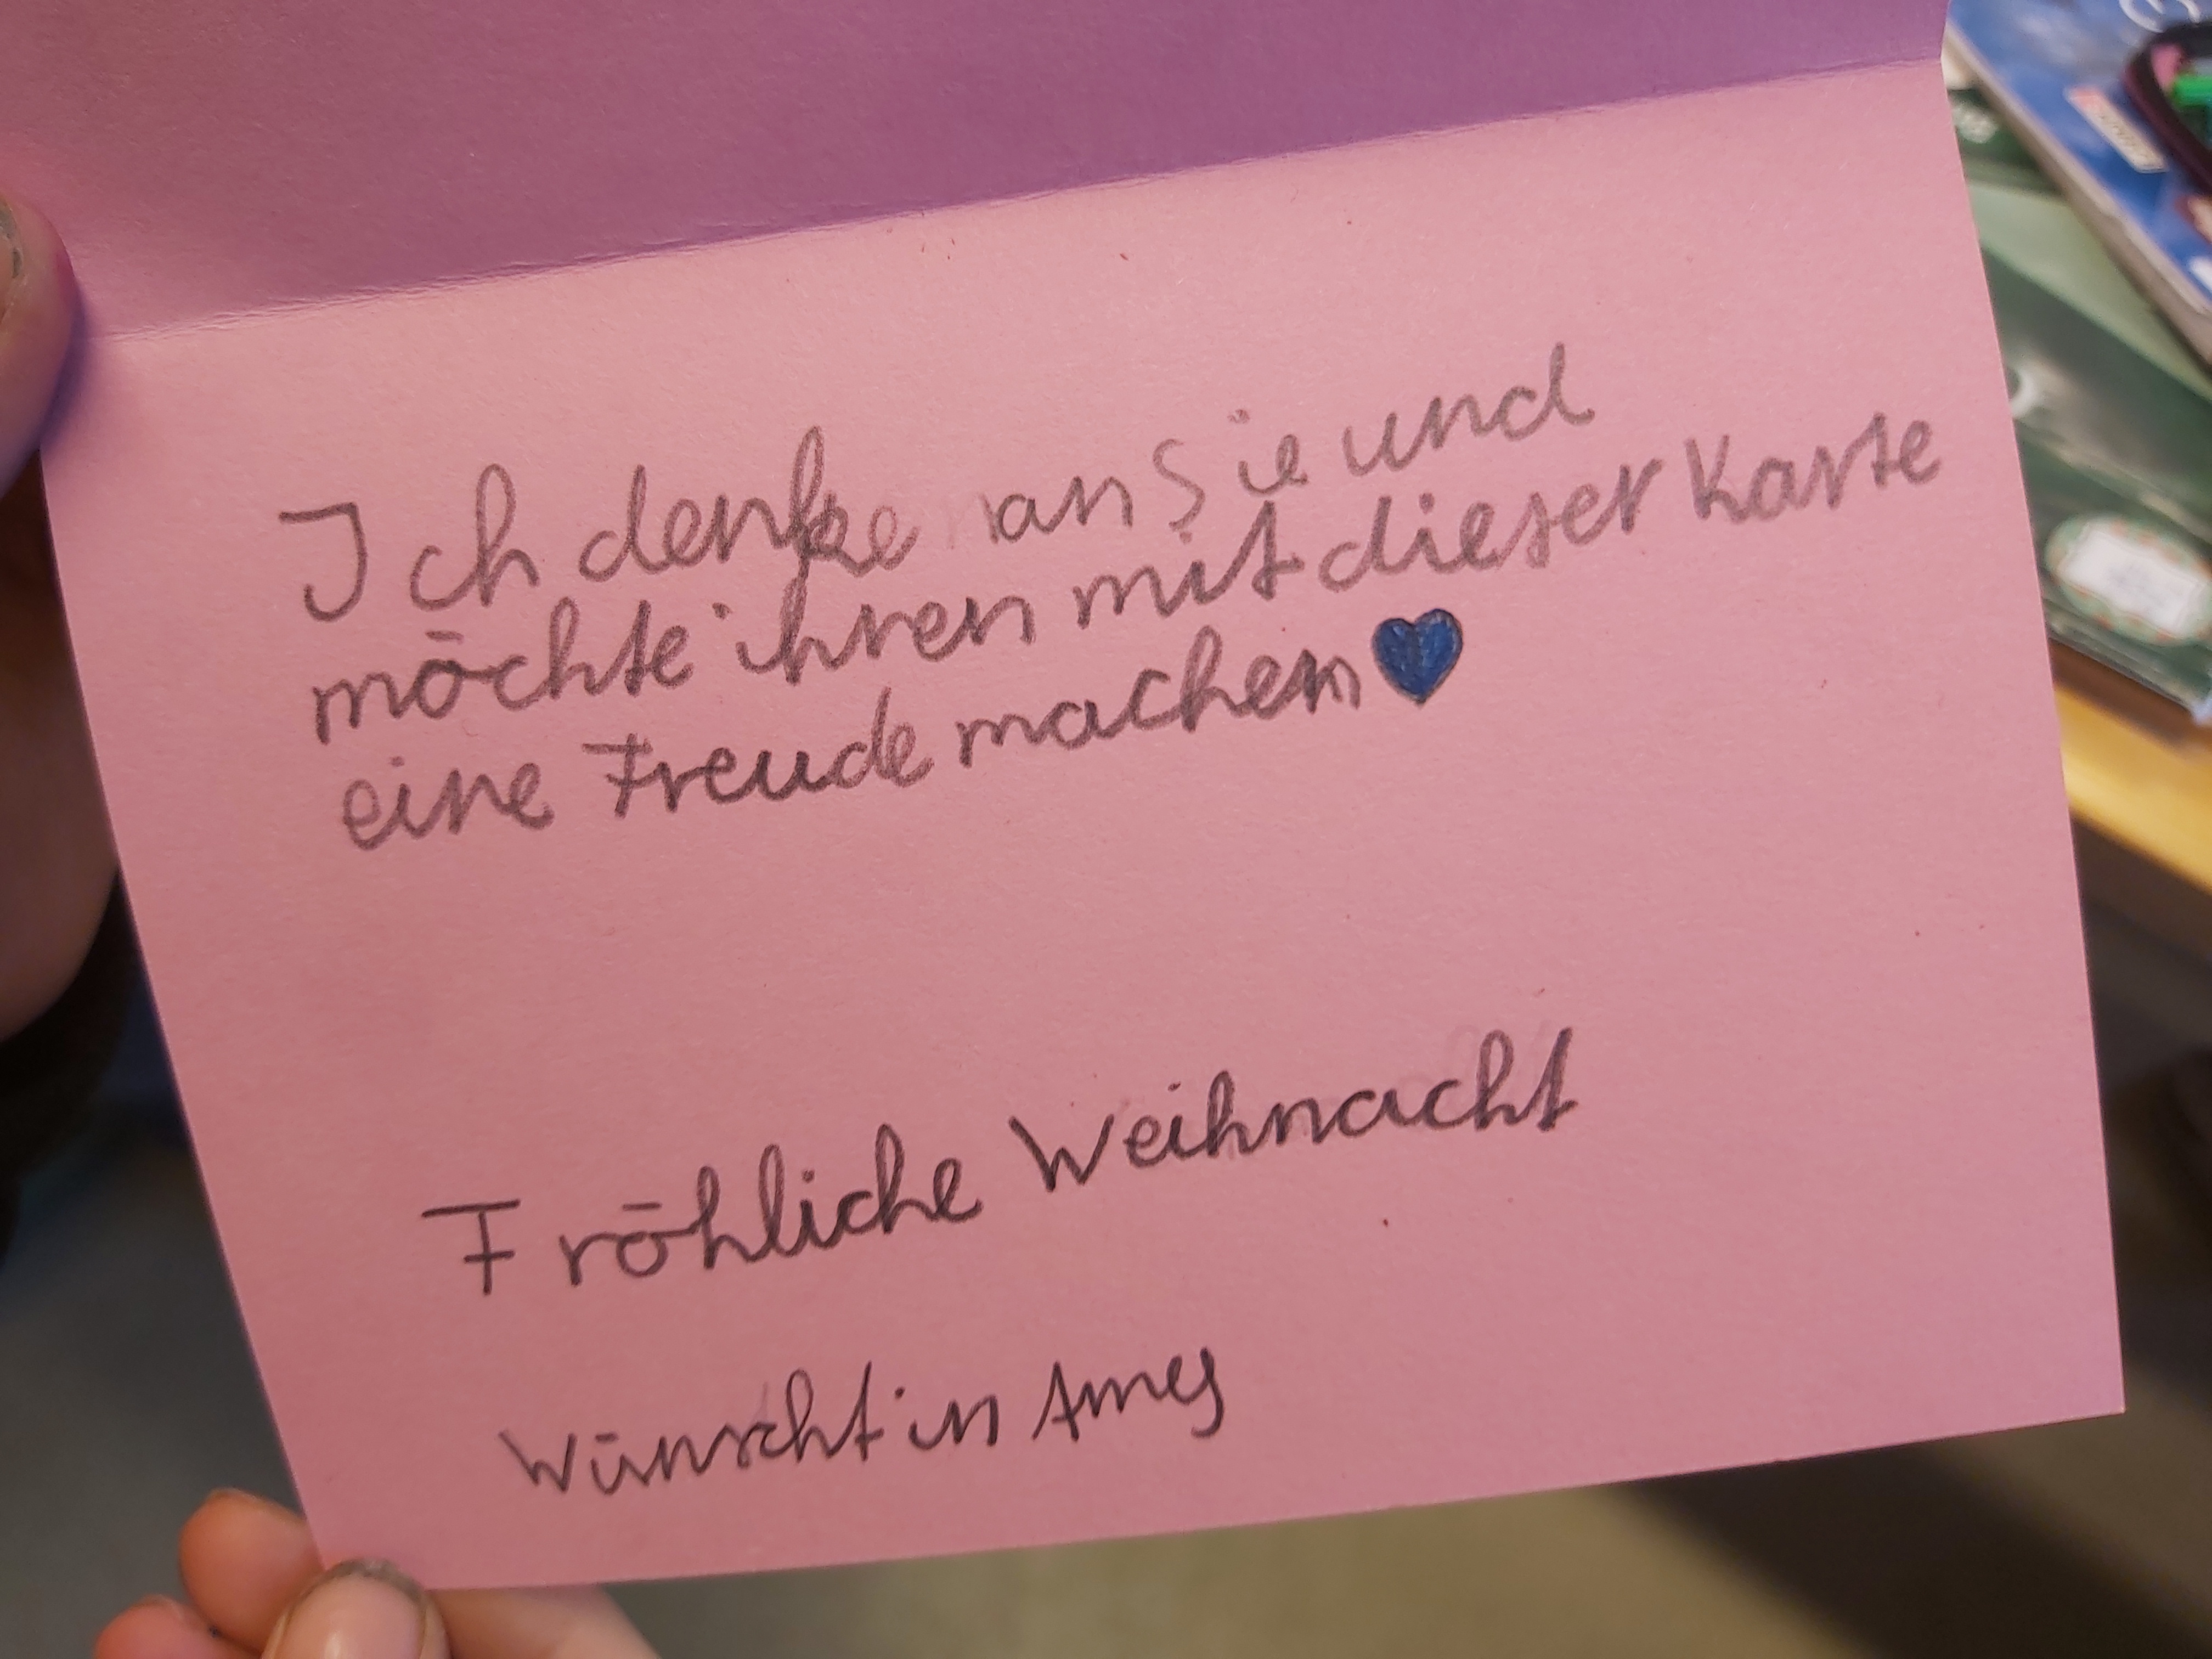 Ich denke an Sie und
möchte ihren mit dieser Karte
eine Freude machen
Fröhliche Weihnacht
Wünscht in